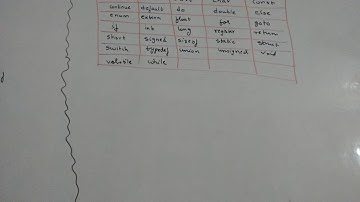 char const
continue default do double else
enum extern float for goto
if int long register return
short signed sizeof static struct
switch typedef union unsigned void
volatile while